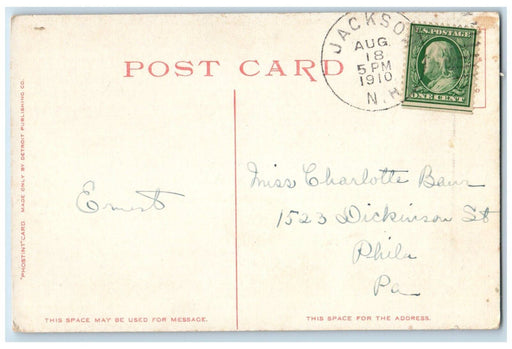 POST CARD
JACKSO
AUG.
18
5 PM
1910
N.H.
U.S. POSTAGE
ONE CENT
"PHOSTINT" CARD MADE ONLY BY DETROIT PUBLISHING CO.
Ernest
Miss Charlotte Baur
1523 Dickinson St
Phila
Pa
THIS SPACE MAY BE USED FOR MESSAGE.
THIS SPACE FOR THE ADDRESS.